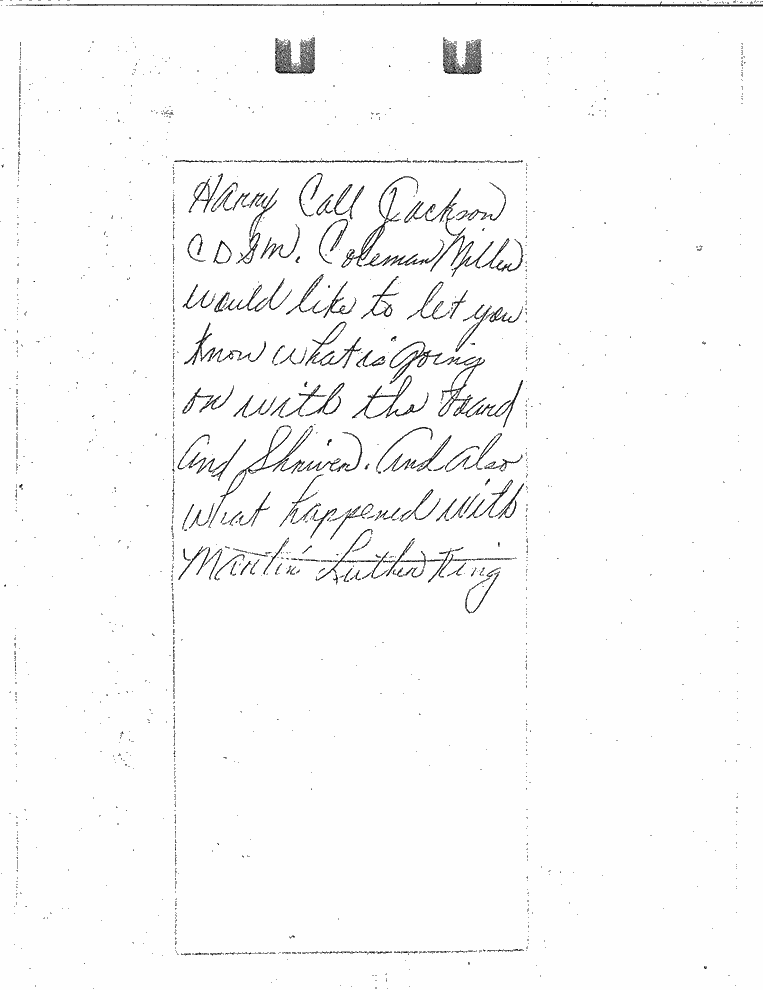 Harry Call Jackson
CDGM. Coleman Miller
would like to let you
know what is going
on with the board
And Shriver. And also
what happened with
Martin Luther King